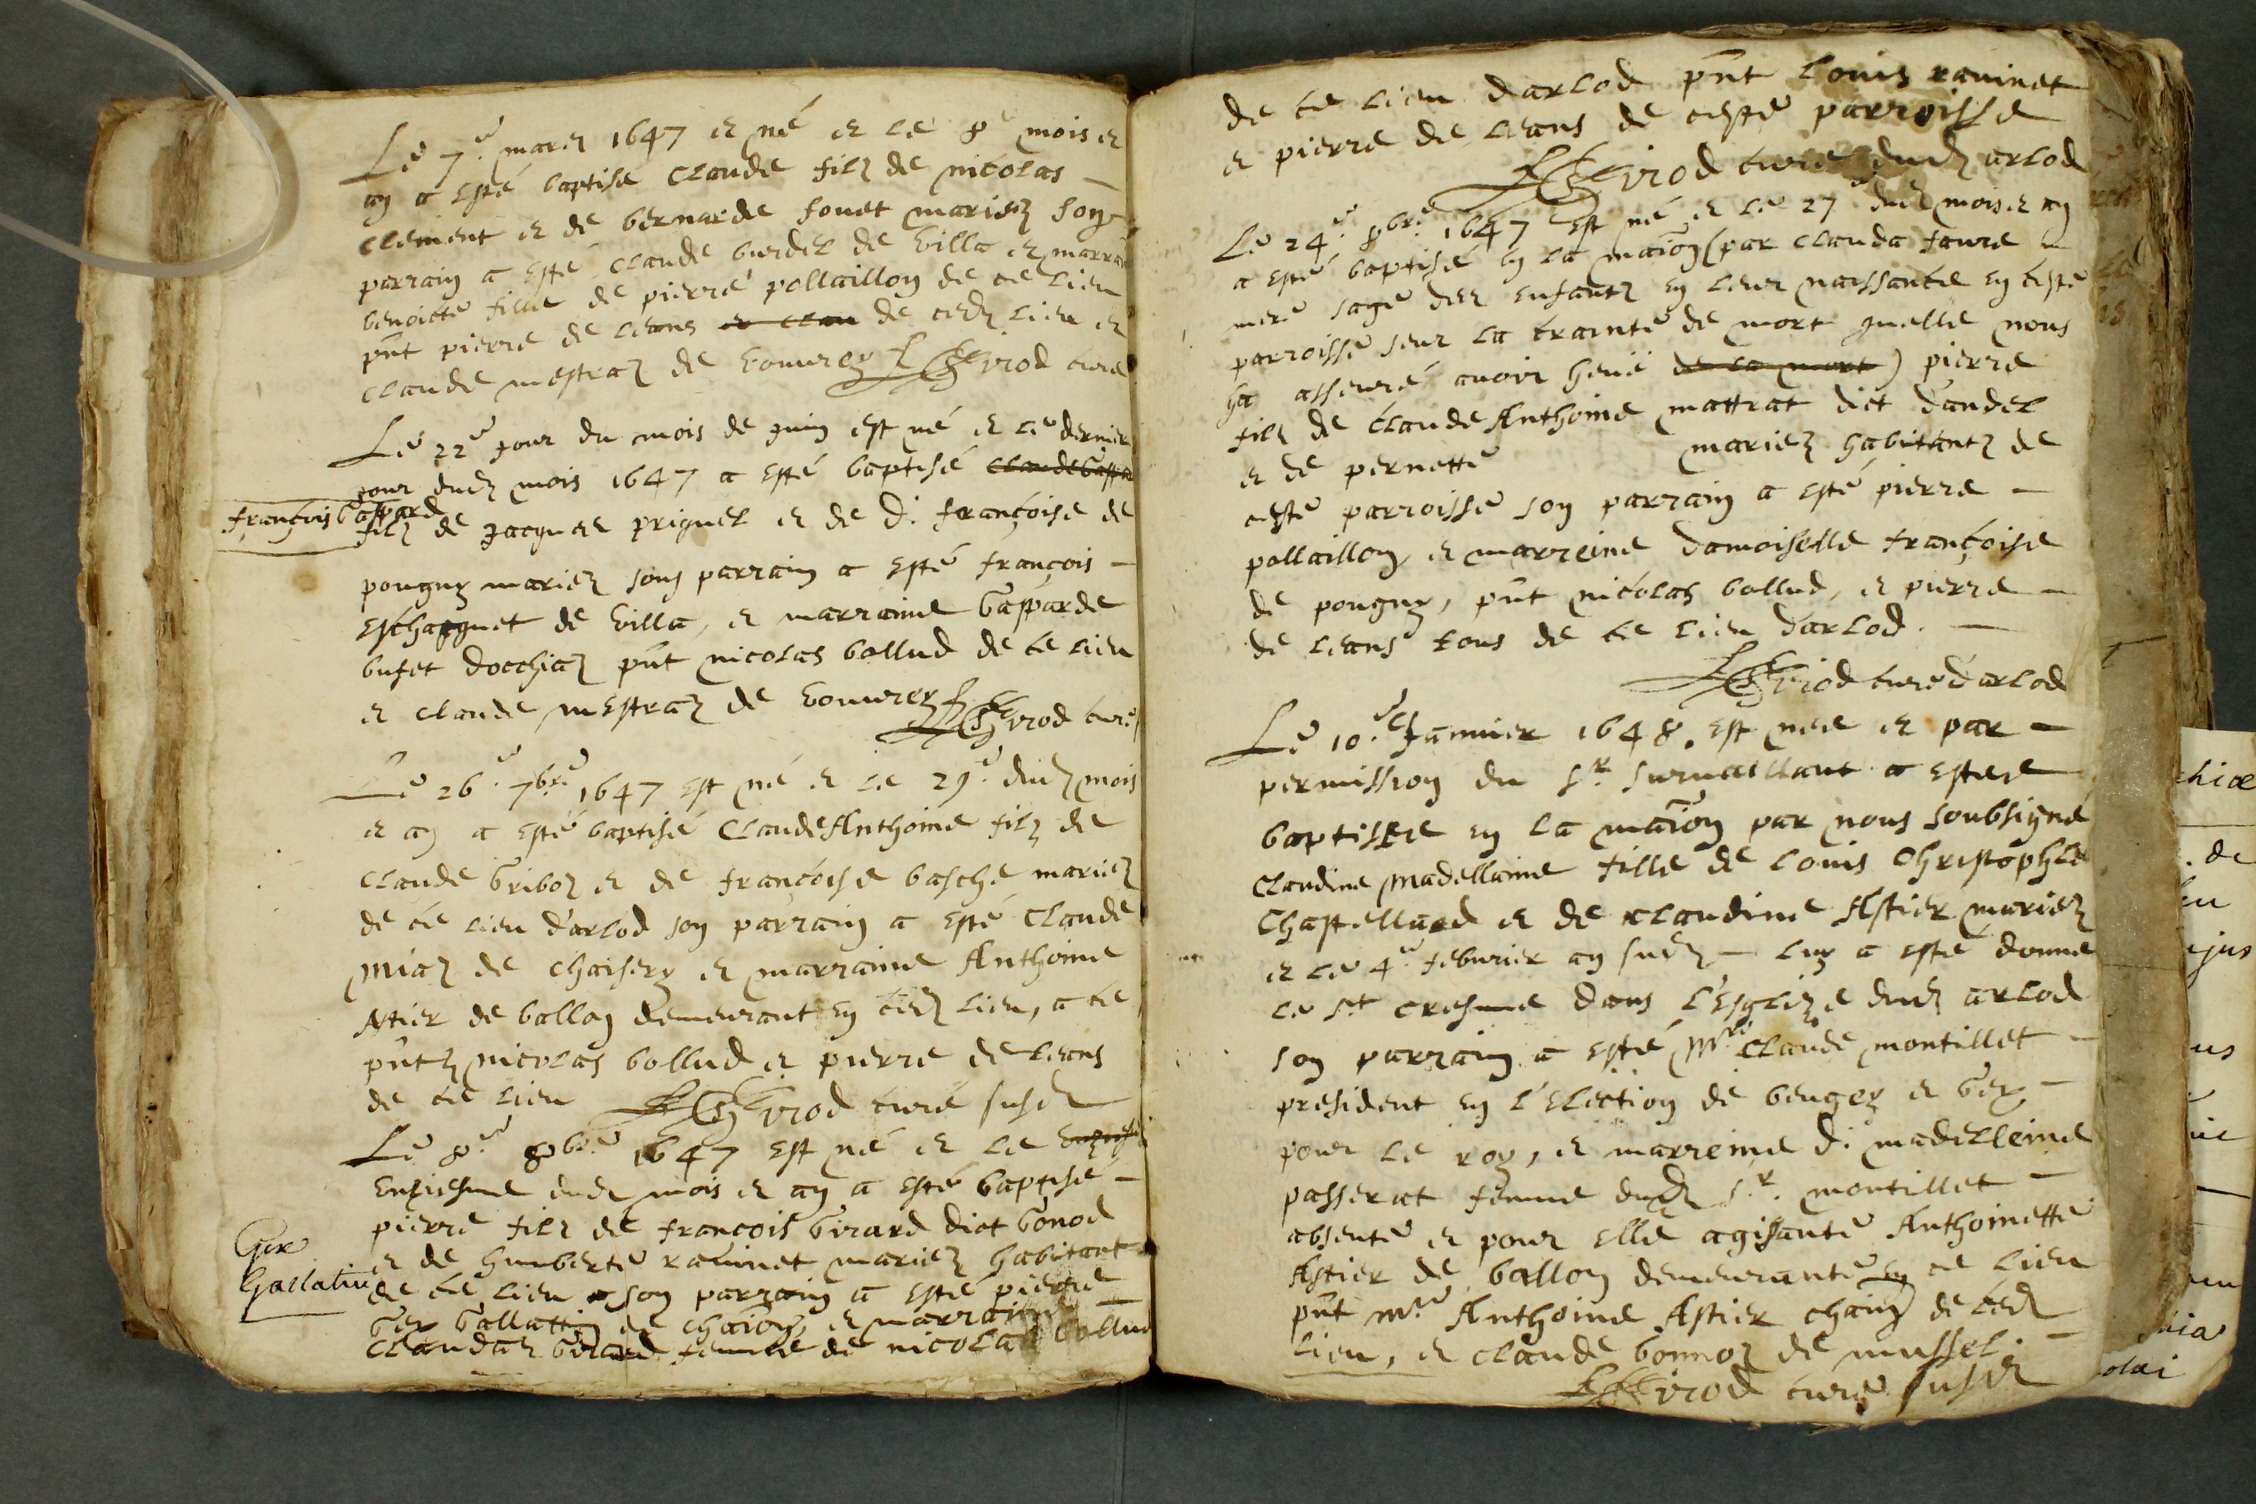 Le 7e mars 1647 et né et le 8e mois et
an a esté baptisé claude filz de nicolas
clement et de bernarde fouet mariez son
parrain a esté claude burdel de villa et marra
benoicte fille de pierre pollaillon de ce lieu
pnt pierre de leans et clau de cedz lieu et
claude mestraz de vouvrey Girod curé
Le 22e jour du mois de juin est né et le dernier
jour dudz mois 1647 a esté baptisé claude Gaspa
françois Gaspard
filz de jacques priguel et de d. françoise de
pougny mariez sons parrain a esté françois
eschaquet de villa, et marraine Gasparde
bufet docchiaz pnt nicolas bollud de ce lieu
et claude mestraz de vouvrey Girod curé
Le 26e 7bre 1647 est né et le 29e dudz mois
et an a esté baptisé Claude Anthoine filz de
claude Griboz et de françoise basche mariez
de ce lieu d'arlod son parrain a esté claude
miaz de chaisery et marraine Anthoine
Attier de ballon demeurant en cedz lieu, a ce
pntz nicolas bollud et pierre de leans
de ce lieu Girod curé susdz
Le 8e 8bre 1647 est né et le
enziesme dudz mois et an a esté baptisé
pierre filz de françois Girard dict Gonod
et de humberte ravinet mariez habitant
Gex
Gallatin
de ce lieu son parrain a esté pierre
Gex Gallattin de chaisy, et marraine
claudaz Girard femme de nicolas bollud
de ce lieu d'arlod pnt louis ravinet
et pierre de leans de ceste parroisse
Girod curé dudz arlod
Le 24e 8bre 1647 est né et le 27e dudz mois et an
a esté baptisé en la maison (par clauda favre
mere sage des enfantz en leur naissance en ceste
parroisse seur la crainte de mort quelle nous
ha asseuré avoir heue de la mort) pierre
filz de claude Anthoine mattrat dict dandel
et de pernette mariez habitantz de
ceste parroisse son parrain a esté pierre
pollaillon, et marreine damoiselle françoise
de pougny, pnt nicolas bollud, et pierre
de leans tous de ce lieu d'arlod.
Girod curé d'arlod
Le 10e Janvier 1648. est née et par
permission du sr survaillant a estée
baptisée en la maison par nous soubsigné
claudine Madellaine fille de louis Christophle
Chastellard et de claudine Astier mariez
et le 4e febvrier an susdz luy a esté donné
le st cresme dans l'esglize dudz arlod
son parrain a esté Mre claude montillet
president en l'election de beugey et Gex
pour le roy, et marreine d. madelleine
passerat femme dudz sr. montillet
absente et pour elle agissante Anthoinette
Astier de ballon demeurante en ce lieu
pnt mre Anthoine Astier chain de cedz
lieu, et claude bonnoz de mussel.
Girod curé susdz